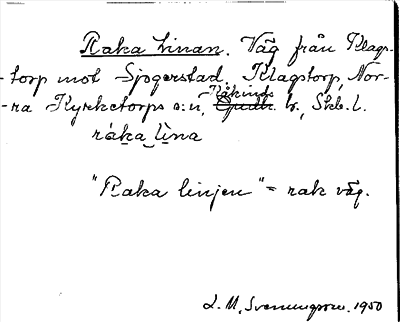 Raka Linan. Väg från Klags-
-torp mot Sjogerstad. Klagstorp, Nor-
-ra Kyrketorps s:n, Kåkinds h., Skb. l.
ráka_lìna
"Raka linjen" = rak väg.
L. M. Svenungsson. 1950